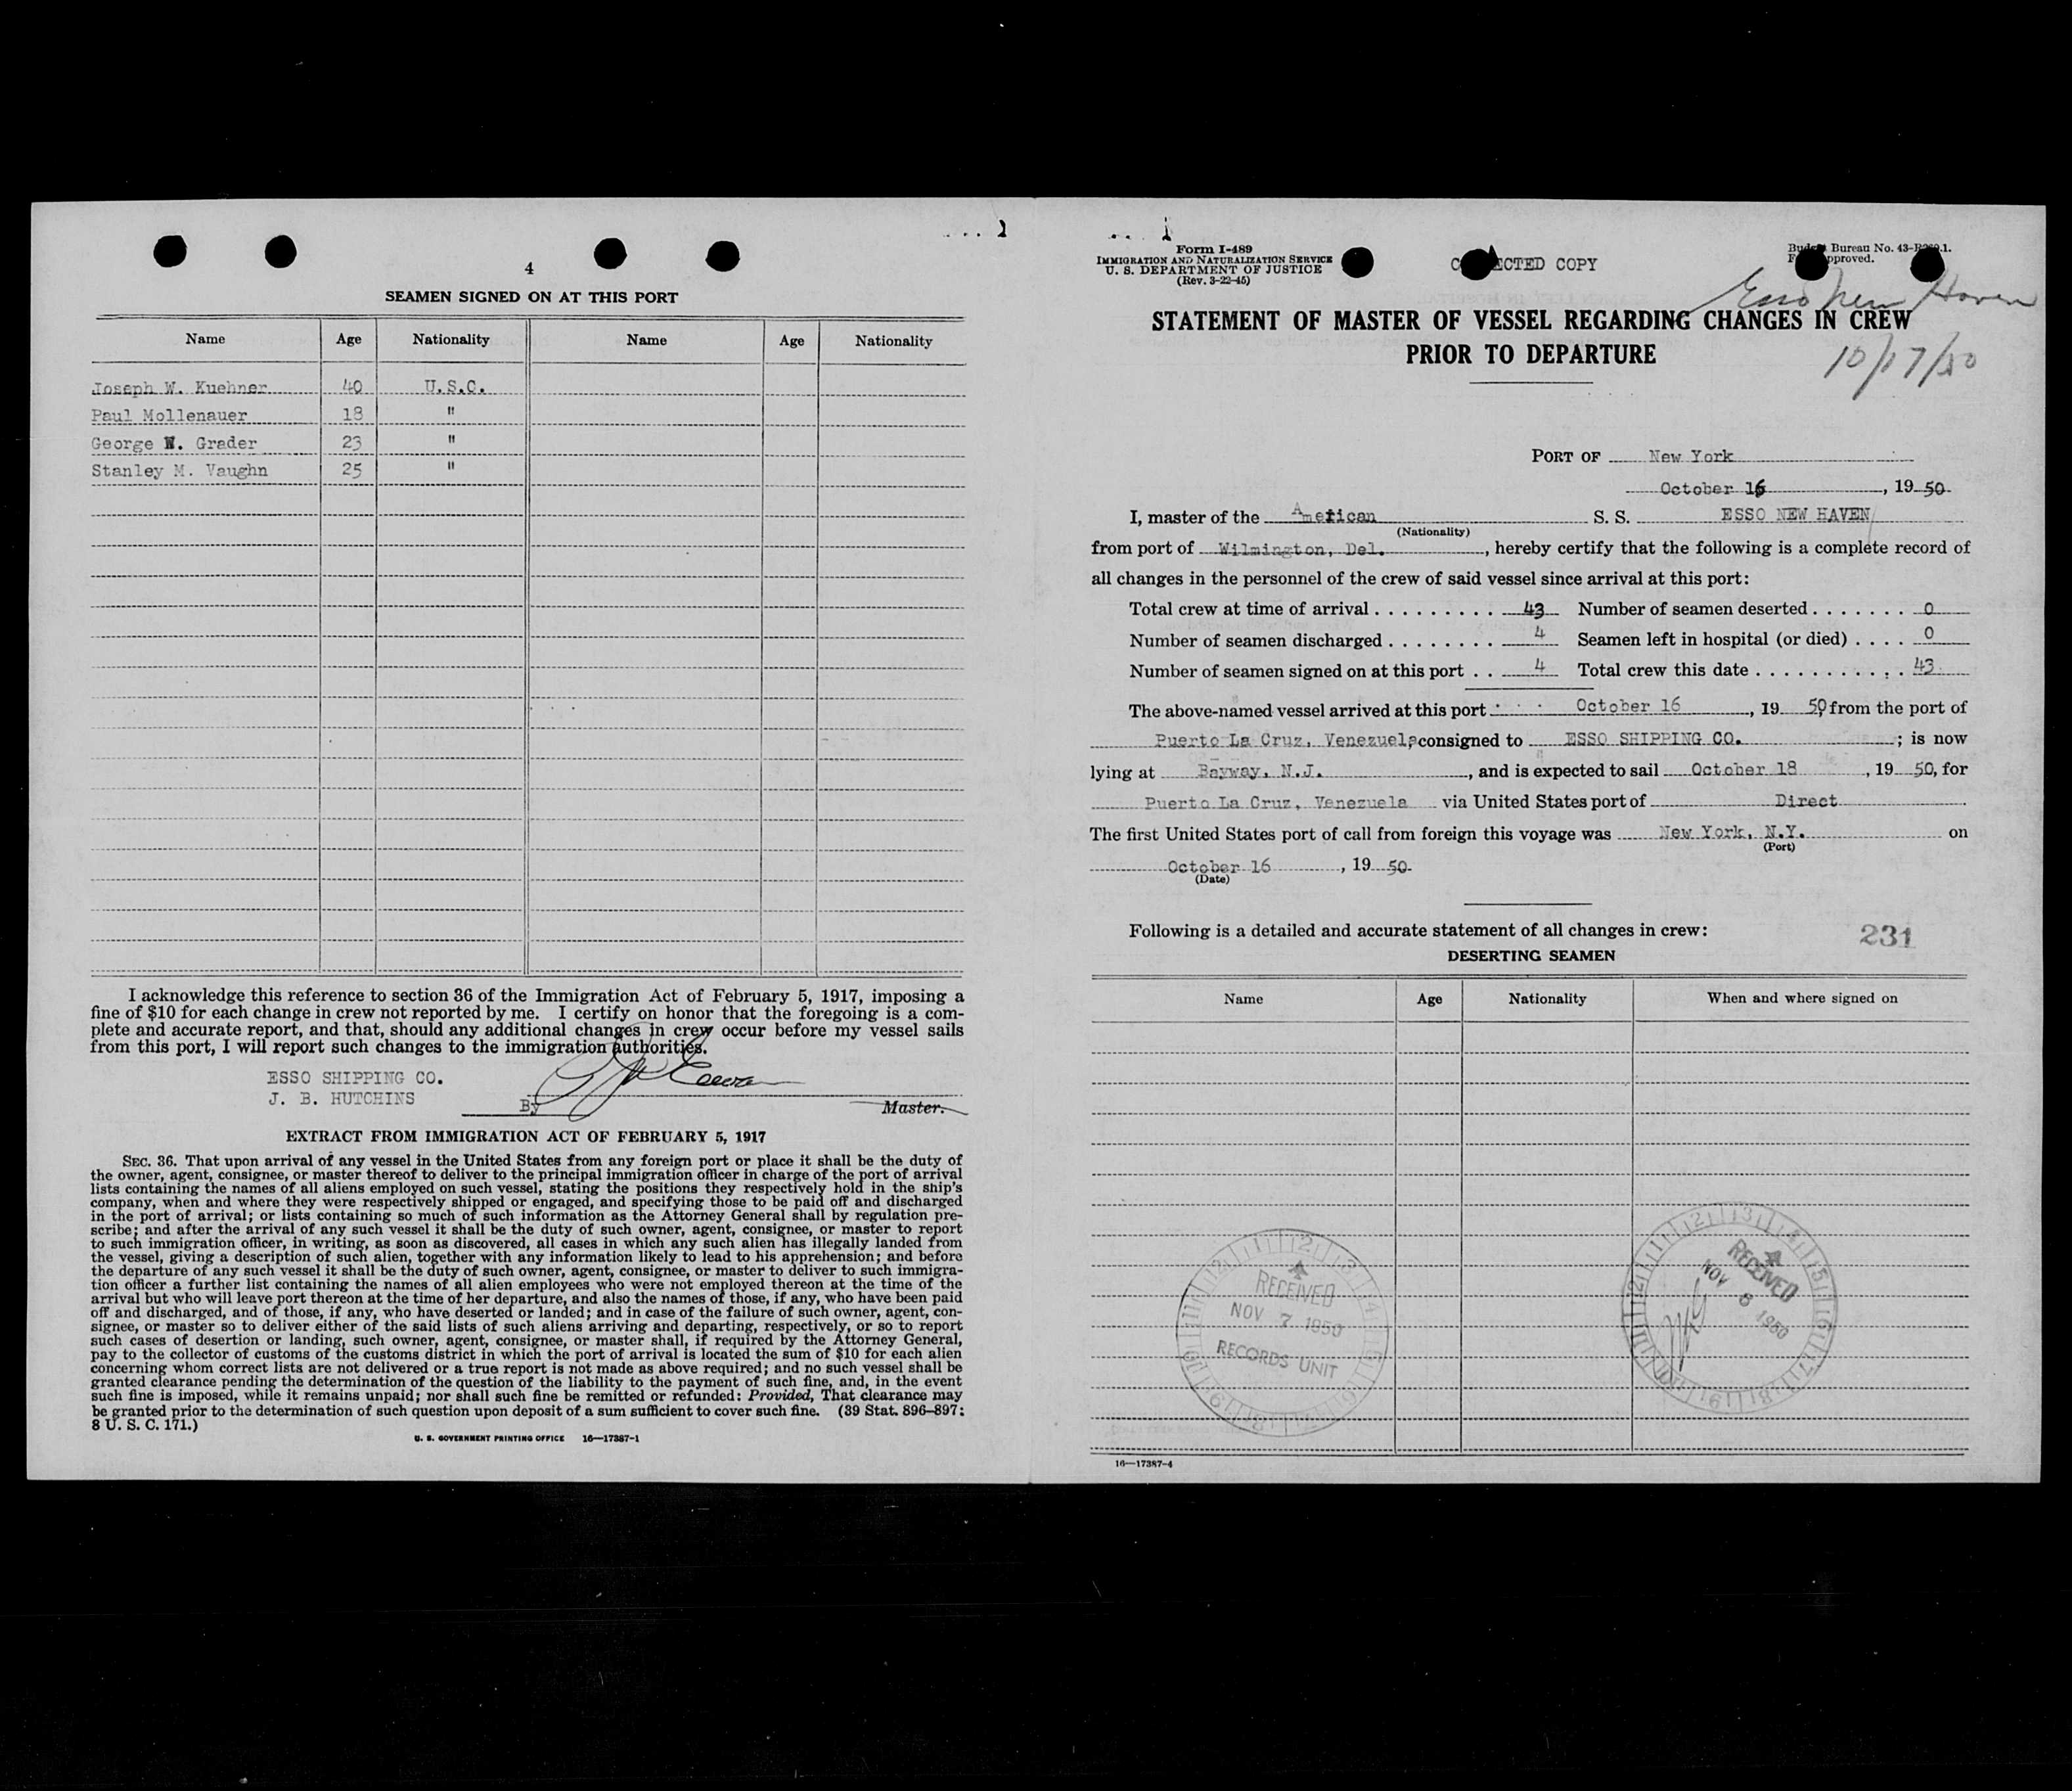 4
SEAMEN SIGNED ON AT THIS PORT
Name Age Nationality Name Age Nationality
Joseph W. Kuehner 40 U.S.C.
Paul Mollenauer 18 "
George W. Grader 23 "
Stanley M. Vaughn 25 "
I acknowledge this reference to section 36 of the Immigration Act of February 5, 1917, imposing a
fine of $10 for each change in crew not reported by me. I certify on honor that the foregoing is a com-
plete and accurate report, and that, should any additional changes in crew occur before my vessel sails
from this port, I will report such changes to the immigration authorities.
ESSO SHIPPING CO.
J. B. HUTCHINS By Master.
EXTRACT FROM IMMIGRATION ACT OF FEBRUARY 5, 1917
SEC. 36. That upon arrival of any vessel in the United States from any foreign port or place it shall be the duty of
the owner, agent, consignee, or master thereof to deliver to the principal immigration officer in charge of the port of arrival
lists containing the names of all aliens employed on such vessel, stating the positions they respectively hold in the ship's
company, when and where they were respectively shipped or engaged, and specifying those to be paid off and discharged
in the port of arrival; or lists containing so much of such information as the Attorney General shall by regulation pre-
scribe; and after the arrival of any such vessel it shall be the duty of such owner, agent, consignee, or master to report
to such immigration officer, in writing, as soon as discovered, all cases in which any such alien has illegally landed from
the vessel, giving a description of such alien, together with any information likely to lead to his apprehension; and before
the departure of any such vessel it shall be the duty of such owner, agent, consignee, or master to deliver to such immigra-
tion officer a further list containing the names of all alien employees who were not employed thereon at the time of the
arrival but who will leave port thereon at the time of her departure, and also the names of those, if any, who have been paid
off and discharged, and of those, if any, who have deserted or landed; and in case of the failure of such owner, agent, con-
signee, or master so to deliver either of the said lists of such aliens arriving and departing, respectively, or so to report
such cases of desertion or landing, such owner, agent, consignee, or master shall, if required by the Attorney General,
pay to the collector of customs of the customs district in which the port of arrival is located the sum of $10 for each alien
concerning whom correct lists are not delivered or a true report is not made as above required; and no such vessel shall be
granted clearance pending the determination of the question of the liability to the payment of such fine, and, in the event
such fine is imposed, while it remains unpaid; nor shall such fine be remitted or refunded: Provided, That clearance may
be granted prior to the determination of such question upon deposit of a sum sufficient to cover such fine. (39 Stat. 896–897;
8 U. S. C. 171.)
U. S. GOVERNMENT PRINTING OFFICE 16—17387-1
Form I-489
IMMIGRATION AND NATURALIZATION SERVICE
U. S. DEPARTMENT OF JUSTICE
(Rev. 3-22-45)
COPY
Bureau No. 43-
Esso New Haven
STATEMENT OF MASTER OF VESSEL REGARDING CHANGES IN CREW
PRIOR TO DEPARTURE
10/17/50
PORT OF New York
October 16, 19 50
I, master of the American S. S. ESSO NEW HAVEN
(Nationality)
from port of Wilmington, Del., hereby certify that the following is a complete record of
all changes in the personnel of the crew of said vessel since arrival at this port:
Total crew at time of arrival . . . . . . . . . 43 Number of seamen deserted . . . . . . . 0
Number of seamen discharged . . . . . . . . 4 Seamen left in hospital (or died) . . . . 0
Number of seamen signed on at this port . . 4 Total crew this date . . . . . . . . . . . 43
The above-named vessel arrived at this port October 16, 19 50, from the port of
Puerto La Cruz, Venezuela consigned to ESSO SHIPPING CO.; is now
lying at Bayway, N.J., and is expected to sail October 18, 19 50, for
Puerto La Cruz, Venezuela via United States port of Direct
The first United States port of call from foreign this voyage was New York, N.Y. on
(Port)
October 16, 19 50
(Date)
Following is a detailed and accurate statement of all changes in crew:
231
DESERTING SEAMEN
Name Age Nationality When and where signed on
RECEIVED
NOV 7 1950
RECORDS UNIT
RECEIVED
NOV 8 1950
16—17387-4